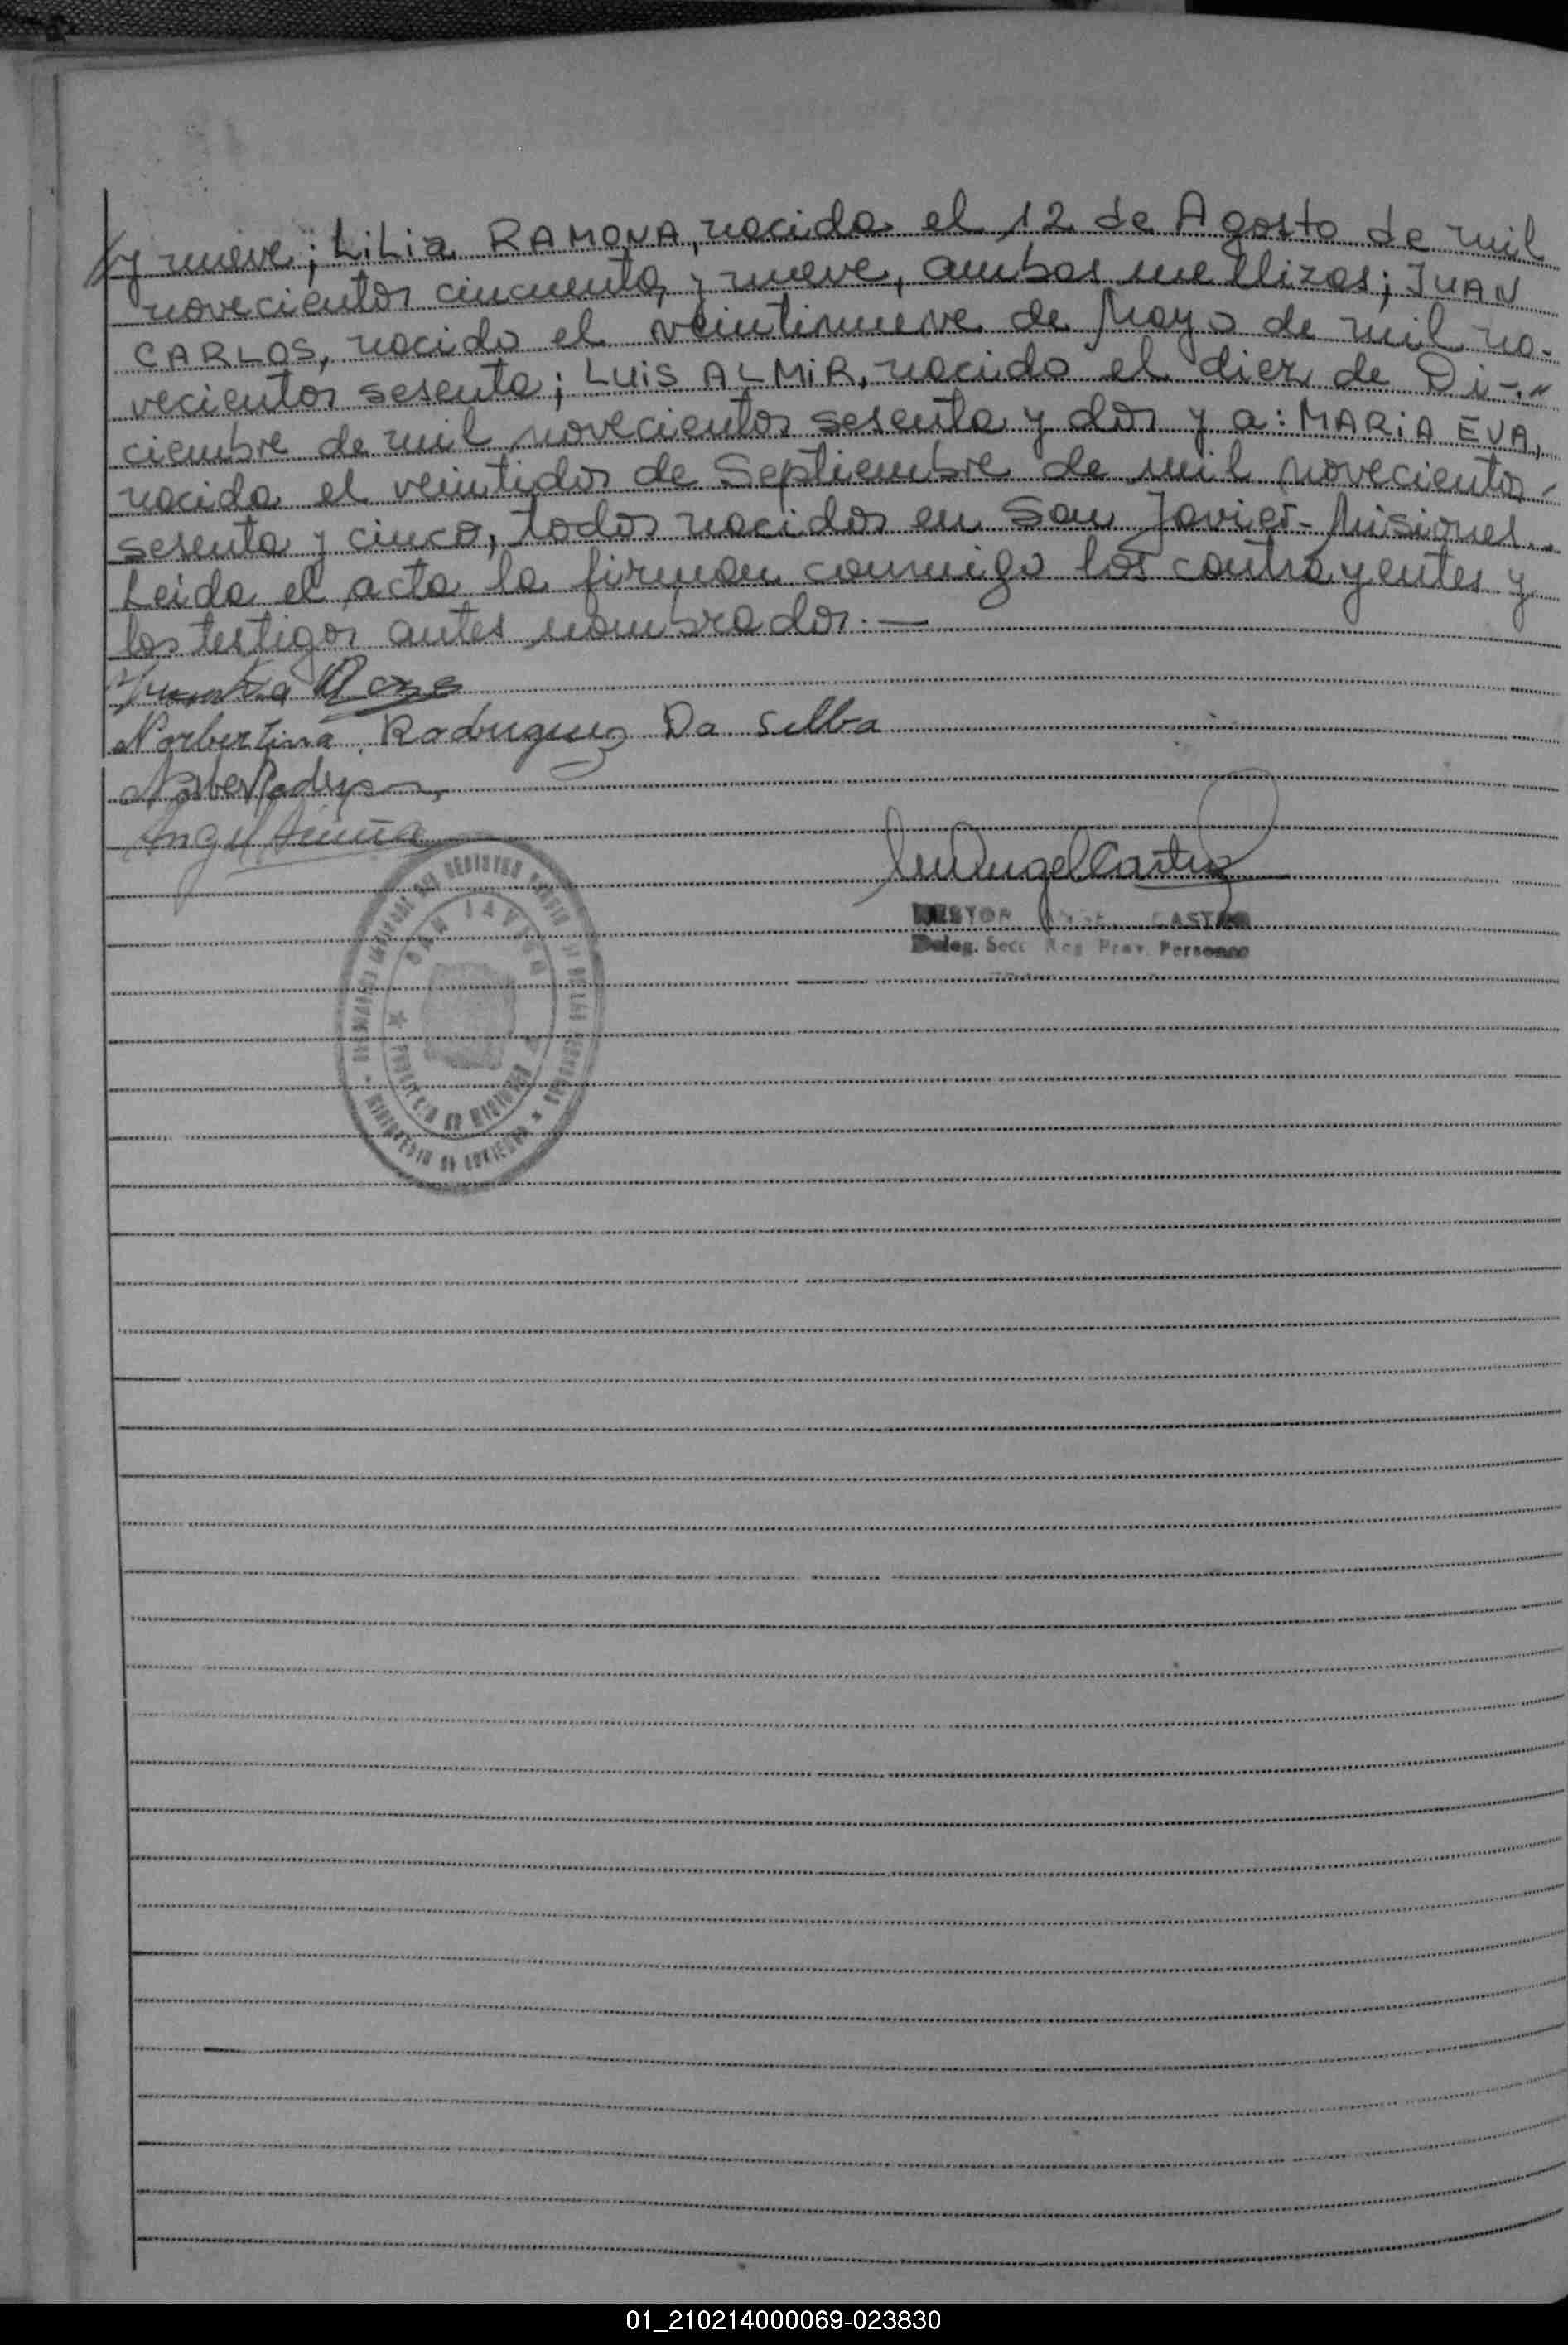 y nueve; LiLia RAMONA, nacida el 12 de Agosto de mil
novecientos cincuenta y nueve, ambos mellizos; JUAN
CARLOS, nacido el veintinueve de Mayo de mil no-
vecientos sesenta; LUIS ALMIR, nacido el diez de Di-
ciembre de mil novecientos sesenta y dos y a: MARIA EVA,
nacida el veintidos de Septiembre de mil novecientos
sesenta y cinco, todos nacidos en San Javier-Misiones.
Leida el acta la firman conmigo los contrayentes y
los testigos antes nombrados.—
Norbertina Rodriguez Da Silba
Angel
NESTOR ANGEL CASTRO
Deleg. Secc Reg Prov. Personas
SAN JAVIER
PROVINCIA DE MISIONES
MINISTERIO DE GOBIERNO
01_210214000069-023830